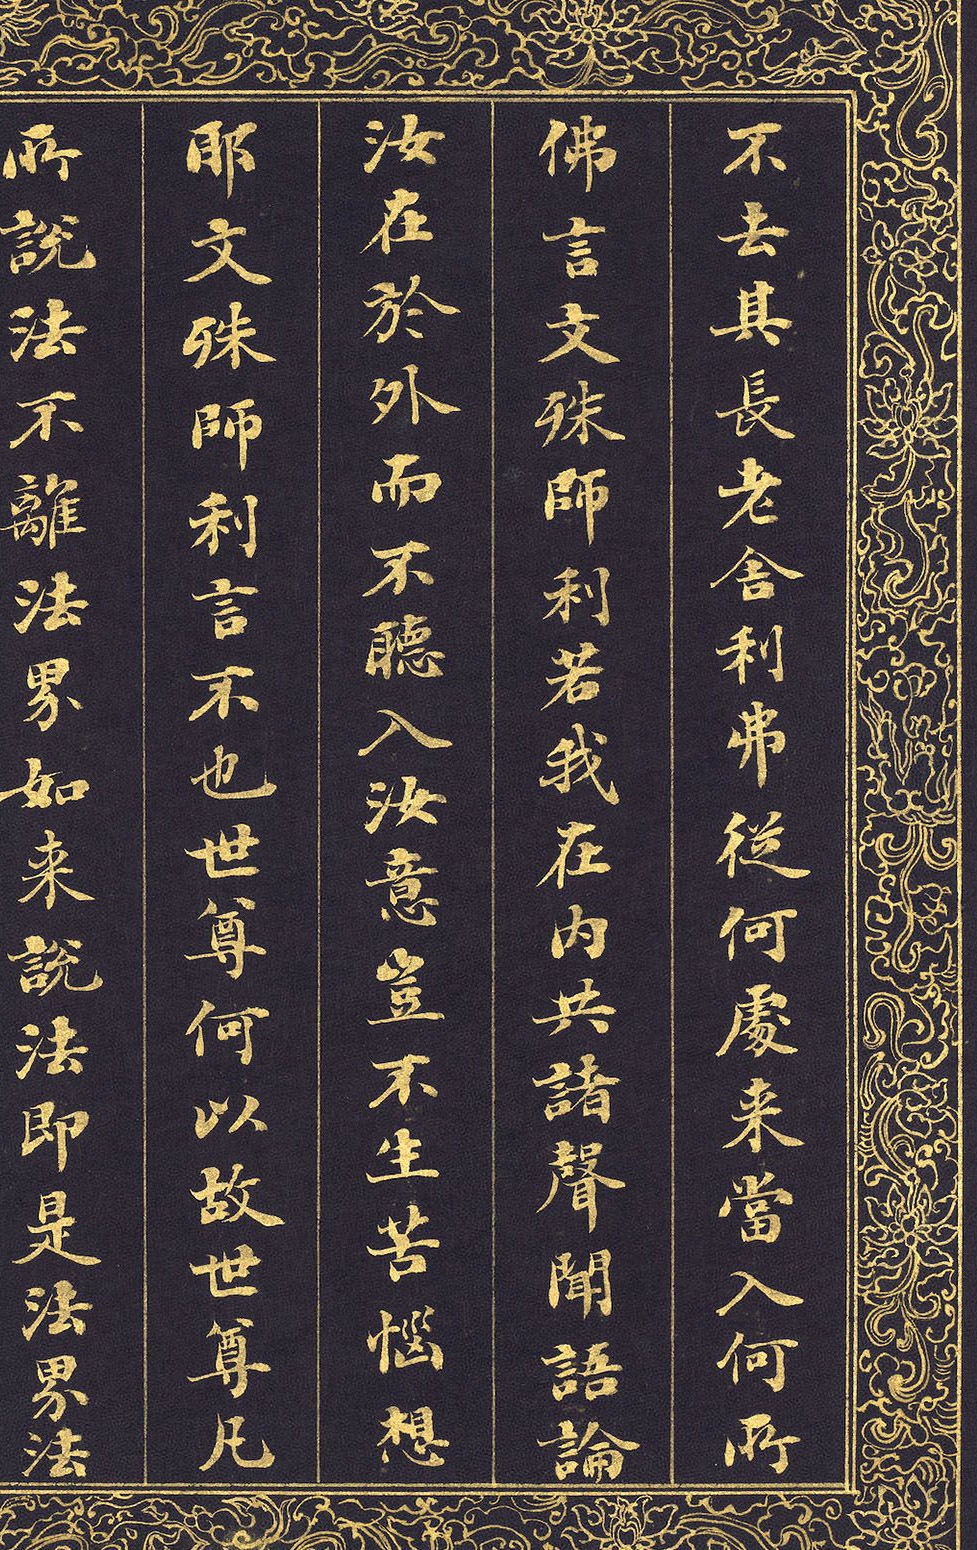 不去其長老舍利弗從何處来當入何所
佛言文殊師利若我在内共諸聲聞語論
汝在於外而不聽入汝意豈不生苦惱想
耶文殊師利言不也世尊何以故世尊凡
所說法不離法界如来說法即是法界法